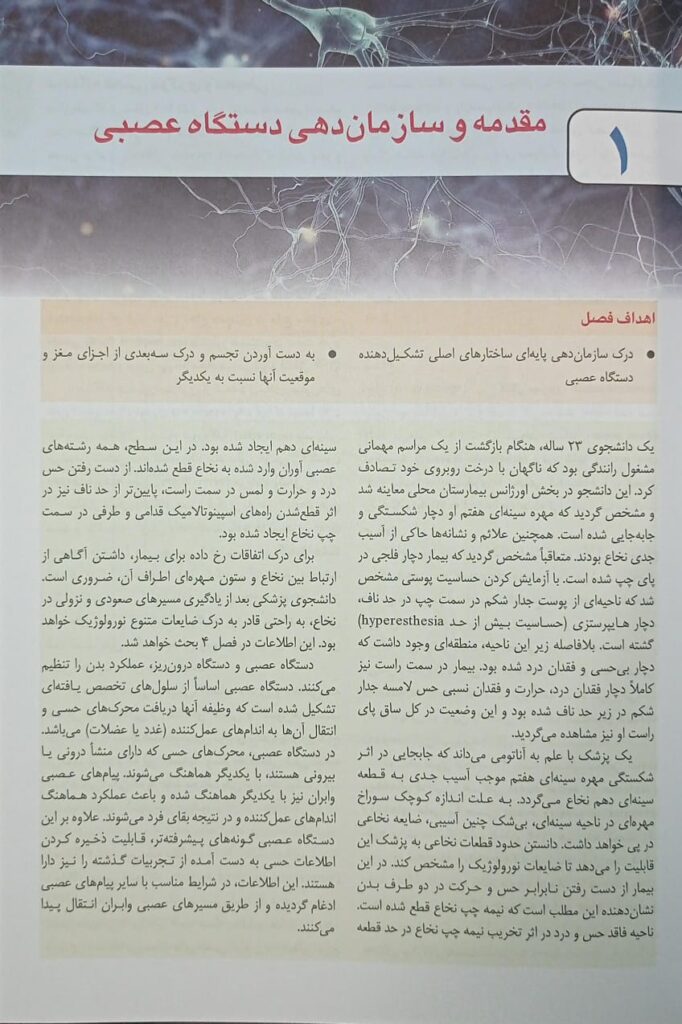 ۱
مقدمه و سازمان‌دهی دستگاه عصبی
اهداف فصل
● درک سازمان‌دهی پایه‌ای ساختارهای اصلی تشکیل‌دهنده
دستگاه عصبی
● به دست آوردن تجسم و درک سه‌بعدی از اجزای مغز و
موقعیت آنها نسبت به یکدیگر
یک دانشجوی ۲۳ ساله، هنگام بازگشت از یک مراسم مهمانی
مشغول رانندگی بود که ناگهان با درخت روبروی خود تصادف
کرد. این دانشجو در بخش اورژانس بیمارستان محلی معاینه شد
و مشخص گردید که مهره سینه‌ای هفتم او دچار شکستگی و
جابه‌جایی شده است. همچنین علائم و نشانه‌ها حاکی از آسیب
جدی نخاع بودند. متعاقباً مشخص گردید که بیمار دچار فلجی در
پای چپ شده است. با آزمایش کردن حساسیت پوستی مشخص
شد که ناحیه‌ای از پوست جدار شکم در سمت چپ در حد ناف،
دچار هایپرستزی (حساسیت بیش از حد hyperesthesia)
گشته است. بلافاصله زیر این ناحیه، منطقه‌ای وجود داشت که
دچار بی‌حسی و فقدان درد شده بود. بیمار در سمت راست نیز
کاملاً دچار فقدان درد، حرارت و فقدان نسبی حس لامسه جدار
شکم در زیر حد ناف شده بود و این وضعیت در کل ساق پای
راست او نیز مشاهده می‌گردید.
یک پزشک با علم به آناتومی می‌داند که جابجایی در اثر
شکستگی مهره سینه‌ای هفتم موجب آسیب جدی به قطعه
سینه‌ای دهم نخاع می‌گردد. به علت اندازه کوچک سوراخ
مهره‌ای در ناحیه سینه‌ای، بی‌شک چنین آسیبی، ضایعه نخاعی
در پی خواهد داشت. دانستن حدود قطعات نخاعی به پزشک این
قابلیت را می‌دهد تا ضایعات نورولوژیک را مشخص کند. در این
بیمار از دست رفتن نابرابر حس و حرکت در دو طرف بدن
نشان‌دهنده این مطلب است که نیمه چپ نخاع قطع شده است.
ناحیه فاقد حس و درد در اثر تخریب نیمه چپ نخاع در حد قطعه
سینه‌ای دهم ایجاد شده بود. در این سطح، همه رشته‌های
عصبی آوران وارد شده به نخاع قطع شده‌اند. از دست رفتن حس
درد و حرارت و لمس در سمت راست، پایین‌تر از حد ناف نیز در
اثر قطع‌شدن راه‌های اسپینوتالامیک قدامی و طرفی در سمت
چپ نخاع ایجاد شده بود.
برای درک اتفاقات رخ داده برای بیمار، داشتن آگاهی از
ارتباط بین نخاع و ستون مهره‌ای اطراف آن، ضروری است.
دانشجوی پزشکی بعد از یادگیری مسیرهای صعودی و نزولی در
نخاع، به راحتی قادر به درک ضایعات متنوع نورولوژیک خواهد
بود. این اطلاعات در فصل ۴ بحث خواهد شد.
دستگاه عصبی و دستگاه درون‌ریز، عملکرد بدن را تنظیم
می‌کنند. دستگاه عصبی اساساً از سلول‌های تخصص یافته‌ای
تشکیل شده است که وظیفه آنها دریافت محرک‌های حسی و
انتقال آن‌ها به اندام‌های عمل‌کننده (غدد یا عضلات) می‌باشد.
در دستگاه عصبی، محرک‌های حسی که دارای منشأ درونی یا
بیرونی هستند، با یکدیگر هماهنگ می‌شوند. پیام‌های عصبی
وابران نیز با یکدیگر هماهنگ شده و باعث عملکرد هماهنگ
اندام‌های عمل‌کننده و در نتیجه بقای فرد می‌شوند. علاوه بر این
دستگاه عصبی گونه‌های پیشرفته‌تر، قابلیت ذخیره کردن
اطلاعات حسی به دست آمده از تجربیات گذشته را نیز دارا
هستند. این اطلاعات، در شرایط مناسب با سایر پیام‌های عصبی
ادغام گردیده و از طریق مسیرهای عصبی وابران انتقال پیدا
می‌کنند.